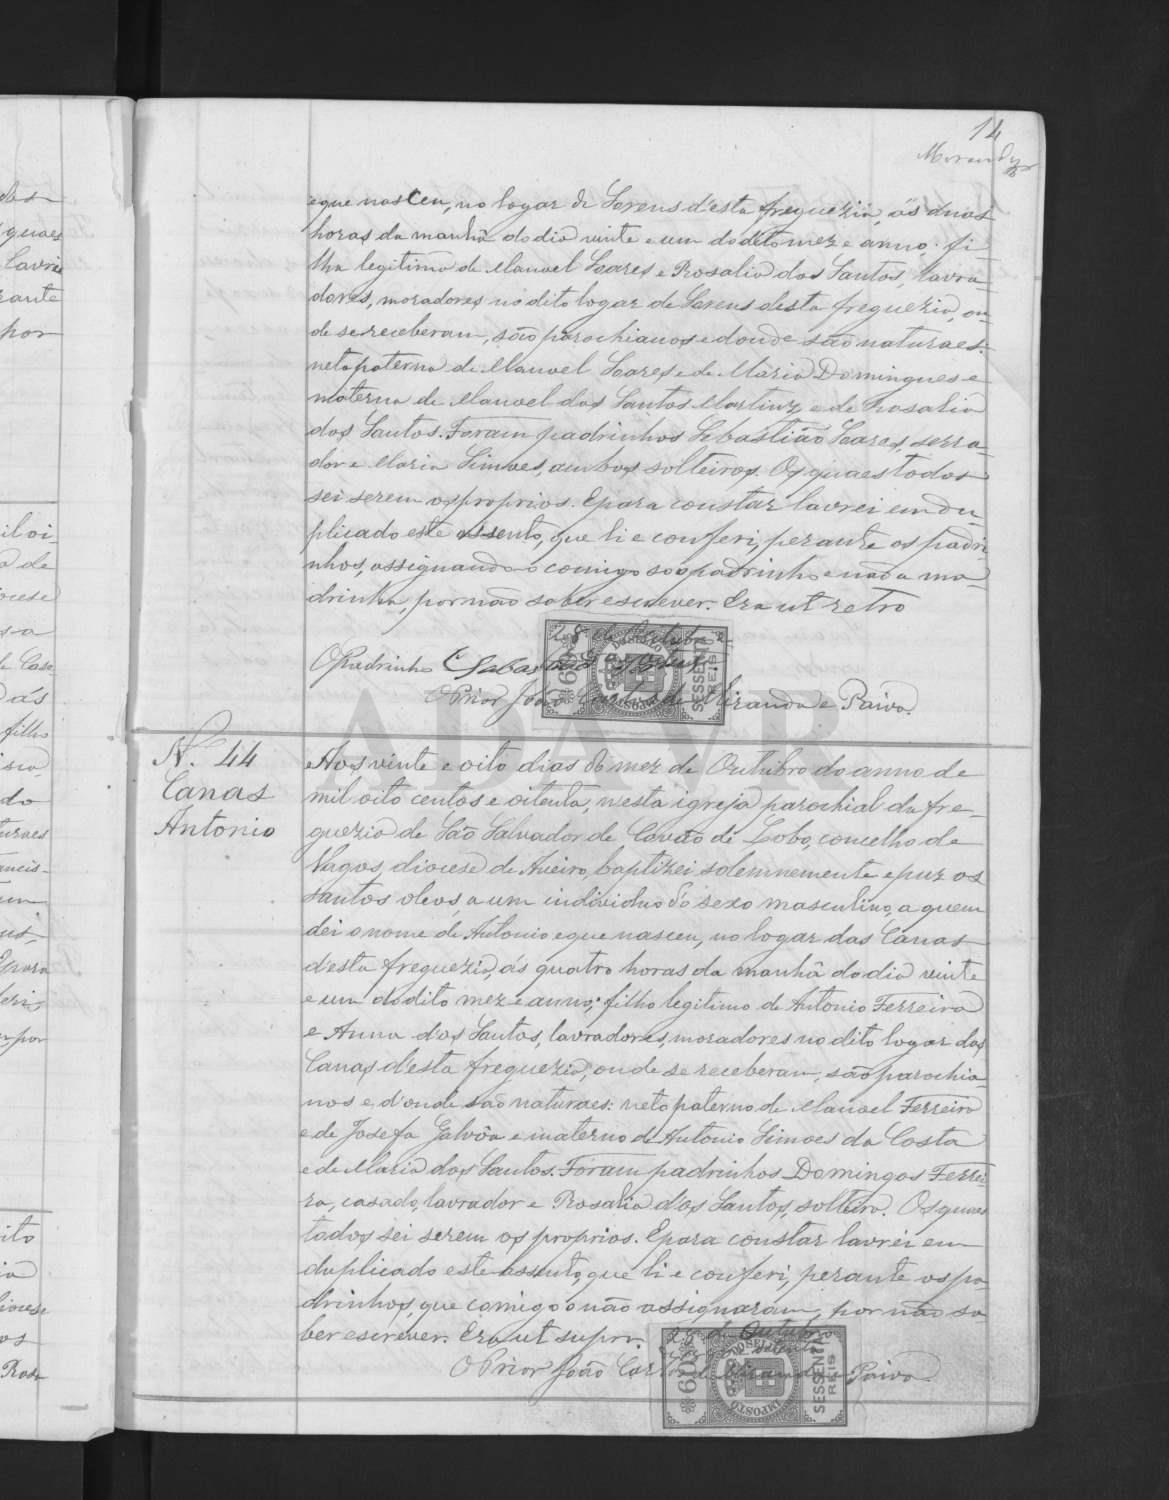 14
e que nasceu, no logar de Sorens d'esta freguezia, ás duas
horas da manhã do dia vinte e um do dito mez e anno; fi-
lha legitima de Manoel Soares e Rosalia dos Santos, lavra-
dores, moradores no dito logar de Sorens desta freguezia, on-
de se receberam, são parochianos e donde são naturaes:
neta paterna de Manoel Soares e de Maria Domingues e
materna de Manoel dos Santos Martinz e de Rosalia
dos Santos. Foram padrinhos Sebastião Soares, serra-
dor e Maria Simoes, ambos solteiros. Os quaes todos
sei serem os proprios. E para constar lavrei em du-
plicado este assento, que li e conferi, perante os padri-
nhos, assignando-o comigo so o padrinho e não a ma-
drinha, por não saber escrever. Era ut retro
28 de Outubro
O Padrinho Sebastião
O Prior João Carlos de Miranda e Paiva.
IMPOSTO DO SELLO
60
SESSENTA
REIS
ADAVR
N.º 44
Canas
Antonio
Aos vinte e oito dias do mez de Outubro do anno de
mil oito centos e oitenta, n'esta igreja parochial da fre-
guezia de São Salvador de Covão do Lobo, concelho de
Vagos, diocese de Aveiro, baptizei solemnemente e puz os
santos oleos, a um individuo do sexo masculino, a quem
dei o nome de Antonio e que nasceu, no logar das Canas
d'esta freguezia, ás quatro horas da manhã do dia vinte
e um do dito mez e anno; filho legitimo de Antonio Ferreira
e Anna dos Santos, lavradores, moradores no dito logar das
Canas d'esta freguezia, onde se receberam, são parochia-
nos e d'onde são naturaes: neto paterno de Manoel Ferreira
e de Josefa Galvôa e materno de Antonio Simoes da Costa
e de Maria dos Santos. Foram padrinhos Domingos Ferrei-
ra, casado, lavrador e Rosalia dos Santos, solteira. Os quaes
todos sei serem os proprios. E para constar lavrei em
duplicado este assento, que li e conferi, perante os pa-
drinhos, que comigo o não assignaram, por não sa-
ber escrever. Era ut supra.
28 de Outubro
O Prior João Carlos de Miranda e Paiva
IMPOSTO DO SELLO
60
SESSENTA
REIS